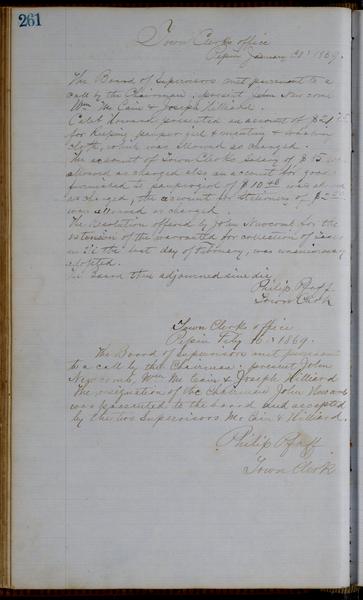 261
Town Clerks office
Pepin January 30th 1869.
The Board of Supervisors met pursuant to a
call by the Chairman: present John Newcomb
Wm Mc Cain & Joseph Hilliard.
Caleb Howard presented an account of $21
for keeping pauper girl & meeting &
cloth, which was allowed as charged.
The account of Town Clerks salary of $15 was
allowed as charged also an account for goods
furnished to pauper girl of $10 was allowed
as charged, the account for stationery of $
was allowed as charged.
The Resolution offered by John Newcomb for the
extension of the warrant for collection of taxes
untill the last day of February, was unanimously
adopted.
The Board then adjourned sine die.
Philip Pfaff
Town Clerk
Town Clerks office
Pepin Feby 16th 1869.
The Board of Supervisors met pursuant
to a call by the Chairman: present John
Newcomb, Wm Mc Cain & Joseph Hilliard
The resignation of the Chairman John Newcomb
was presented to the board and accepted
by the two Supervisors Mc Cain & Hilliard.
Philip Pfaff
Town Clerk